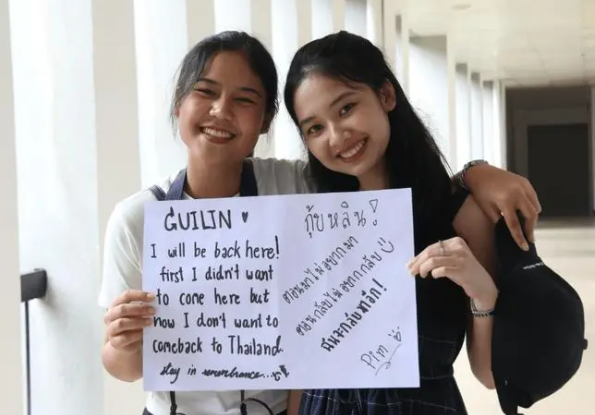 GUILIN ♥
I will be back here!
first I didn't want
to come here but
now I don't want to
comeback to Thailand.
stay in remembrance...
กุ้ยหลิน!
ตอนมาไม่อยากมา
ตอนกลับไม่อยากกลับ
ฉันจะกลับมาอีก!
Pim